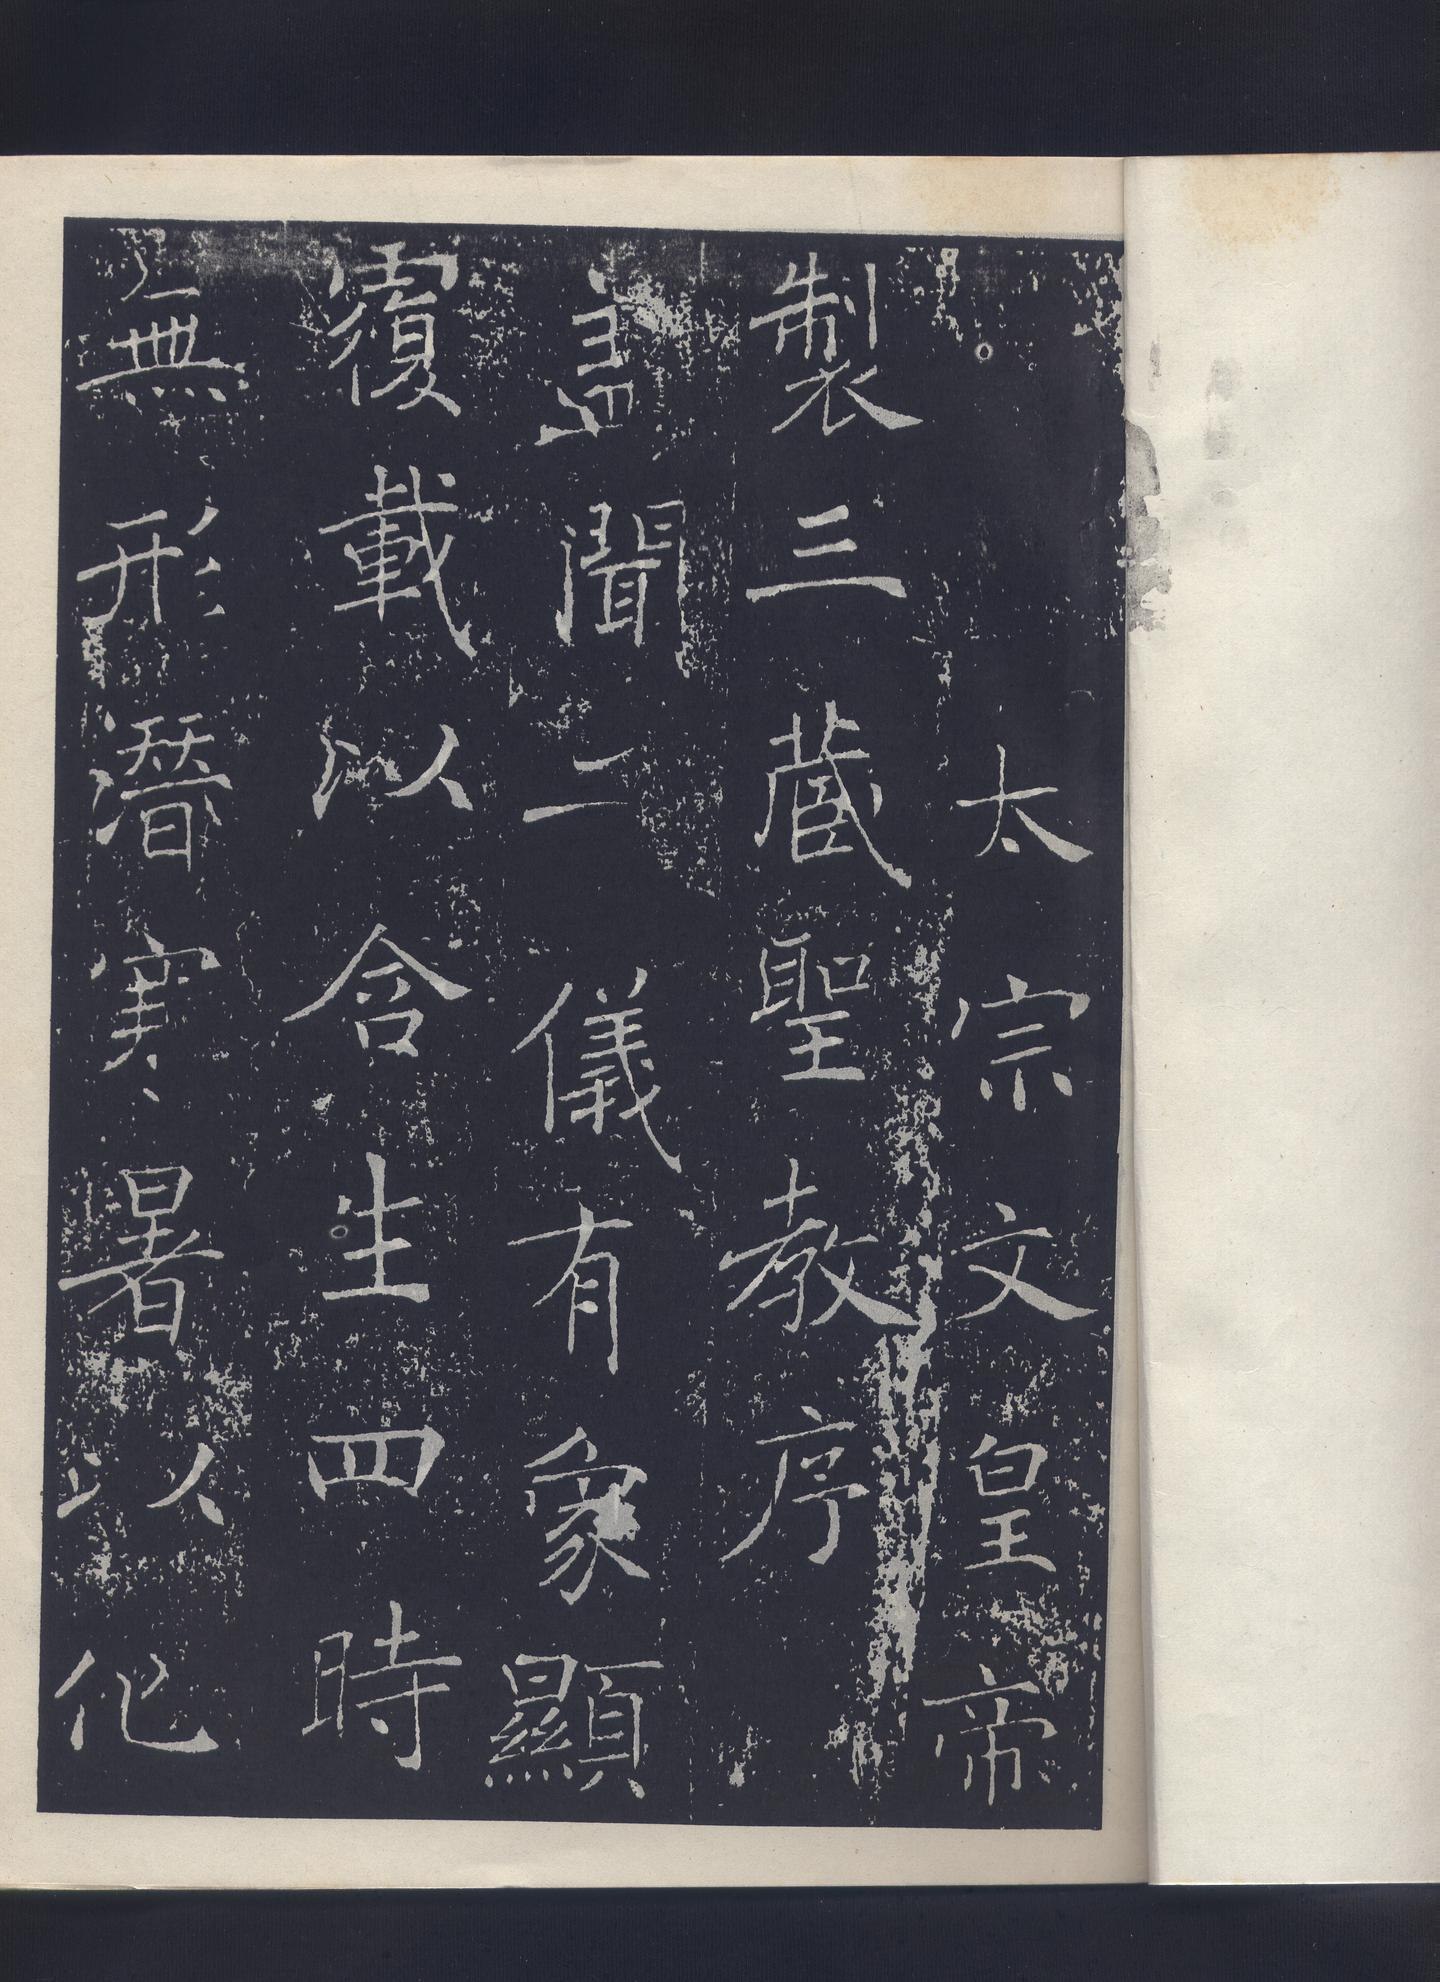 太宗文皇帝
製三藏聖教序
盖聞二儀有象顯
覆載以含生四時
無形潛寒暑以化